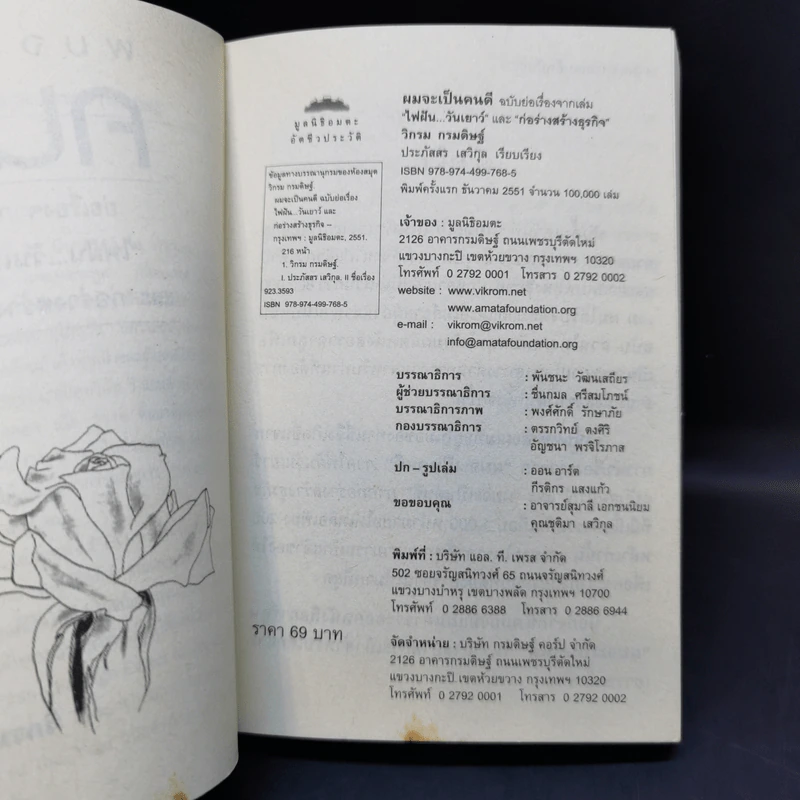 มูลนิธิอมตะ
อัตชีวประวัติ
ข้อมูลทางบรรณานุกรมของห้องสมุด
วิกรม กรมดิษฐ์.
ผมจะเป็นคนดี ฉบับย่อเรื่อง
ไฟฝัน...วันเยาว์ และ
ก่อร่างสร้างธุรกิจ –
กรุงเทพฯ : มูลนิธิอมตะ, 2551.
216 หน้า
1. วิกรม กรมดิษฐ์.
I. ประภัสสร เสวิกุล. II ชื่อเรื่อง
923.3593
ISBN 978-974-499-768-5
ราคา 69 บาท
ผมจะเป็นคนดี ฉบับย่อเรื่องจากเล่ม
"ไฟฝัน...วันเยาว์" และ "ก่อร่างสร้างธุรกิจ"
วิกรม กรมดิษฐ์
ประภัสสร เสวิกุล เรียบเรียง
ISBN 978-974-499-768-5
พิมพ์ครั้งแรก ธันวาคม 2551 จำนวน 100,000 เล่ม
เจ้าของ : มูลนิธิอมตะ
2126 อาคารกรมดิษฐ์ ถนนเพชรบุรีตัดใหม่
แขวงบางกะปิ เขตห้วยขวาง กรุงเทพฯ 10320
โทรศัพท์ 0 2792 0001 โทรสาร 0 2792 0002
website : www.vikrom.net
www.amatafoundation.org
e-mail : vikrom@vikrom.net
info@amatafoundation.org
บรรณาธิการ : พันชนะ วัฒนเสถียร
ผู้ช่วยบรรณาธิการ : ชื่นกมล ศรีสมโภชน์
บรรณาธิการภาพ : พงศ์ศักดิ์ รักษาภัย
กองบรรณาธิการ : ตรรกวิทย์ ดงศิริ
อัญชนา พรจิโรภาส
ปก – รูปเล่ม : ออน อาร์ต
กีรติกร แสงแก้ว
ขอขอบคุณ : อาจารย์สุมาลี เอกชนนิยม
คุณชุติมา เสวิกุล
พิมพ์ที่ : บริษัท แอล. ที. เพรส จำกัด
502 ซอยจรัญสนิทวงศ์ 65 ถนนจรัญสนิทวงศ์
แขวงบางบำหรุ เขตบางพลัด กรุงเทพฯ 10700
โทรศัพท์ 0 2886 6388 โทรสาร 0 2886 6944
จัดจำหน่าย : บริษัท กรมดิษฐ์ คอร์ป จำกัด
2126 อาคารกรมดิษฐ์ ถนนเพชรบุรีตัดใหม่
แขวงบางกะปิ เขตห้วยขวาง กรุงเทพฯ 10320
โทรศัพท์ 0 2792 0001 โทรสาร 0 2792 0002